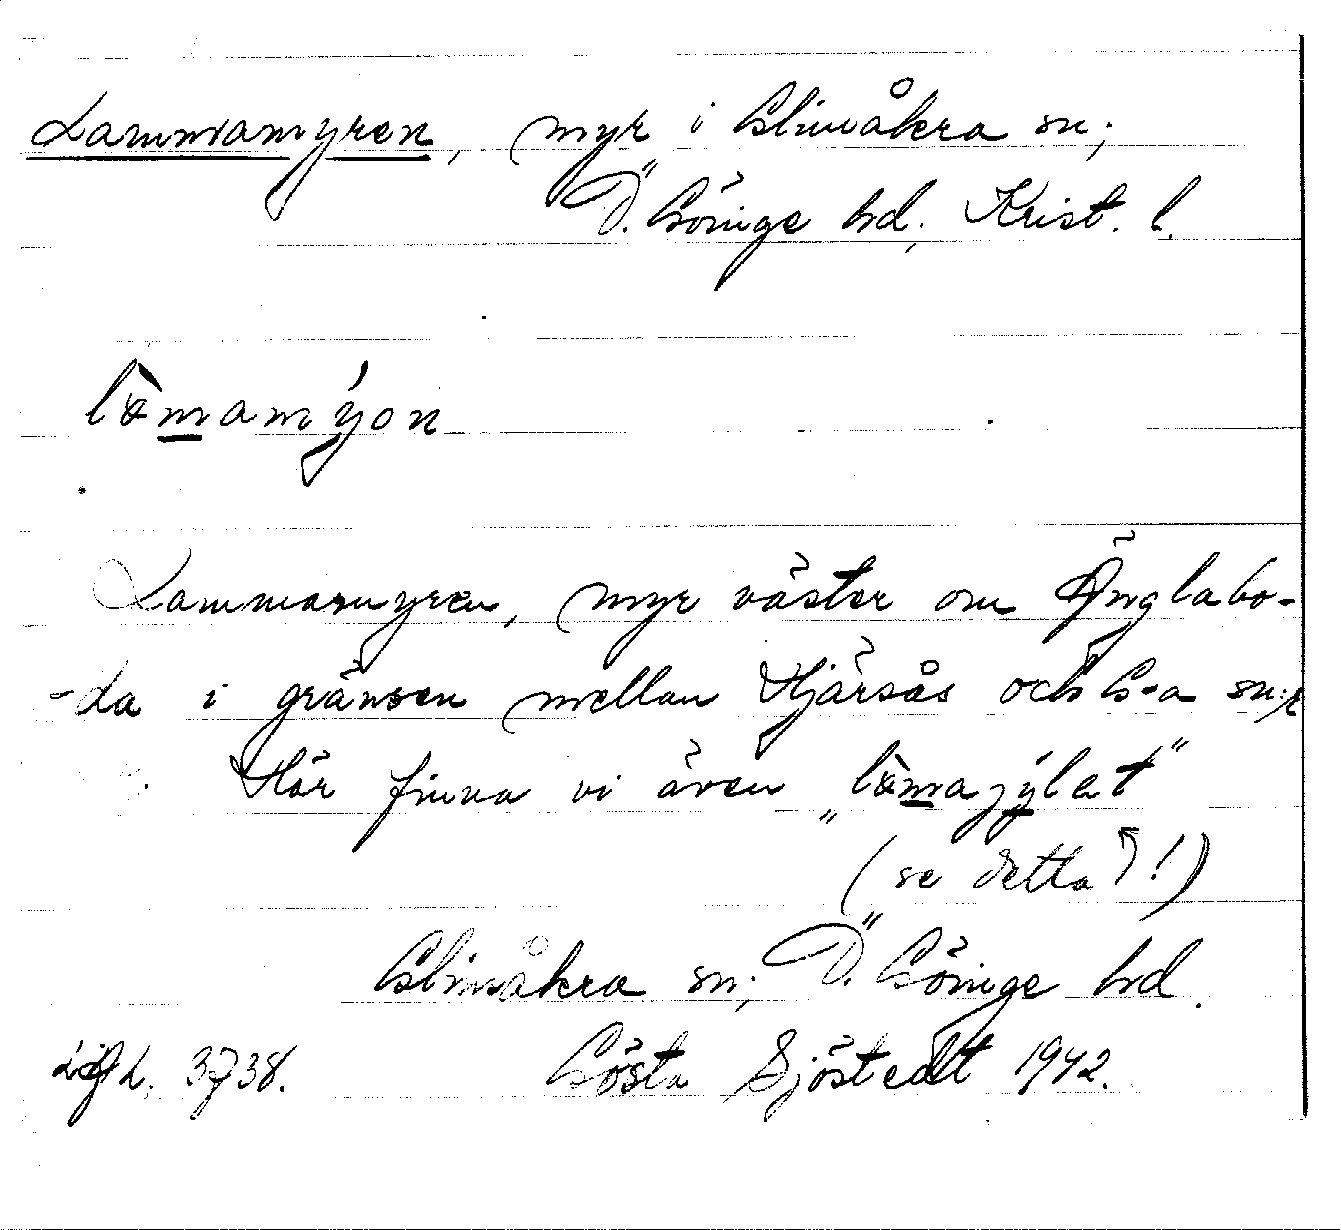 Lammamyren, myr i Glimåkra sn;
Ö. Göinge hd; Krist. l.
làmamýon
Lammamyren, myr väster om Änglabo-
-da i gränsen mellan Hjärsås och G-a sn:r
Här finna vi även „làmajýlet"
(se detta!)
Glimåkra sn; Ö. Göinge hd.
3738. Gösta Sjöstedt 1942.